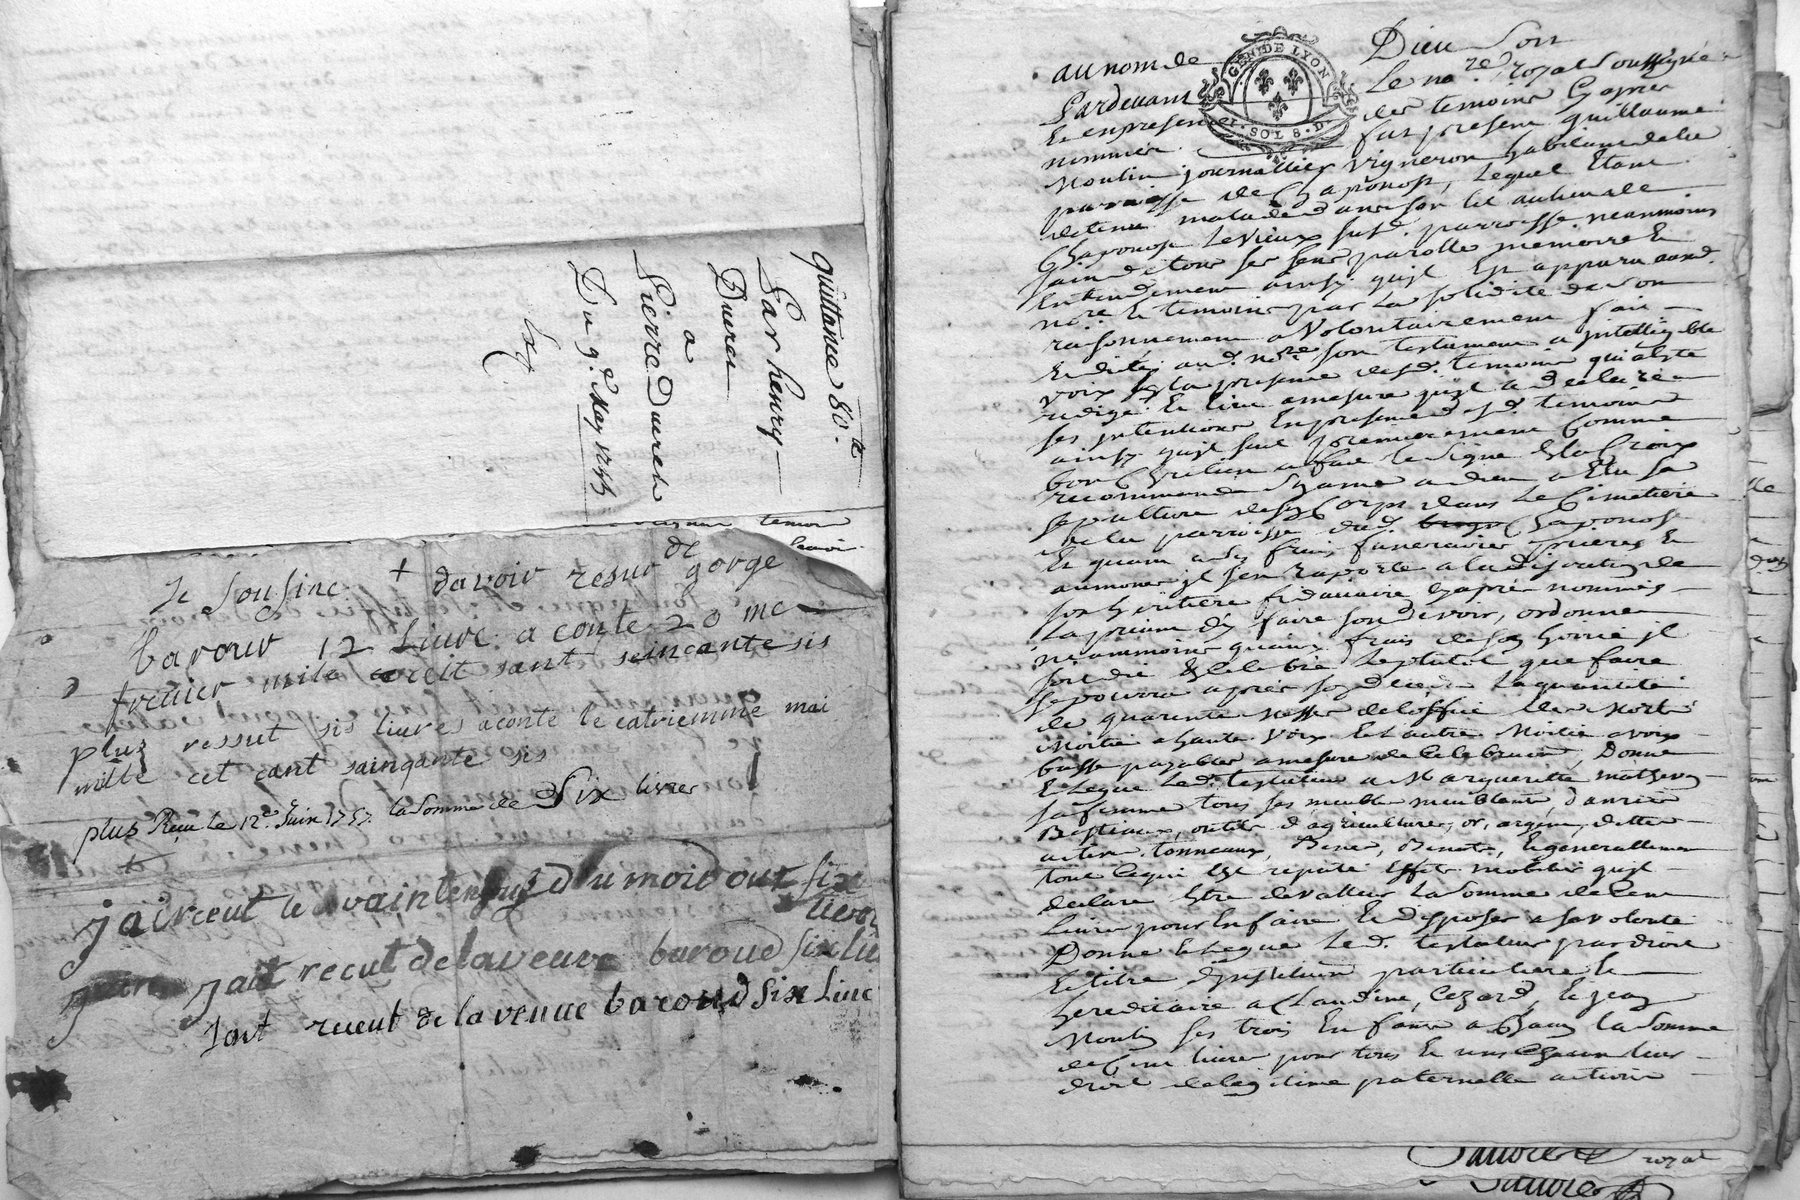 quittance 80.te
Par henry
Dueret
a
Pierre Dueret
Du 9.e May 1755
temoin
Je Sousine + davoir resut de gorge
barour 12 Livre a conte 20 me
fretier mile cet sant seincante sis
plus ressut sis livres aconte le catriemme mai
mille cet cant sainqante sis
plus Reçu le 12e Juin 1757 la Somme de Six livres
j'ai receut le vaint du mois dout six
livre
jait recut de la veuve baroud six liv
Jait receut de la veuve baroud Six Livre
Dieu Soit
au nom de
GEN. DE LYON
1 · SOL 8 · D.
Pardevant Le no.re royal soussigné
Et en presence des temoins Cy apres
nommés. fut present guillaume
Moulin journallier vigneron habitant de la
parroisse de Chaponost, lequel Etant
detenu malade dans son lit au lieu de
Chaponost Le vieux susd. parroisse neanmoins
sain de tous ses sens parolle memoire Et
Entendement ainsy quil Est apparu aud.
no.re Et temoins par la solidité de son
raisonnement a Volontairement fait
Et dicté aud. no.re son testament a intelligible
voix En la presence desd. temoins qui a Eté
redigé Et Ecrit a mesure quil a declaré
ses intentions En presence desd. temoins
ainsy quil suit premierement Comme
bon Chretien a fait le Signe de la Croix
recommandé son ame a dieu a Elu sa
sepulture de son Corps dans Le Cimetiere
de la parroisse dud. Chaponost
Et quant a ses frais funeraires prieres Et
aumones il s'en raporte a la discretion de
son heritiere fiduciaire Cy apres nommée
la priant d'y faire son devoir, ordonne
neammoins quaux frais de son hoirie il
soit dit Et Celebré le plutôt que faire
se pourra apres son deces la quantité
de quarante Messes de loffice des Morts
Moitié a haute Voix Et lautre Moitié a voix
basse payables a mesure de Celebration, Donne
Et Legue Led. testateur a Margueritte mathevon
sa femme tous ses meubles meublants, danrées
Bestiaux, outils d'agriculture, or, argent, dettes
actives, tonneaux, Benes, Benots, Et generallement
tout Ce qui Est reputé Effets mobilier quil
declare Etre de valleur La somme de Cent
Livres pour En faire Et disposer a sa volonté
Donne Et Legue Led. testateur par droit
Et titre d'institution particuliere Et
hereditaire a Claudine, Cezard, Et Jean
Moulin ses trois Enfants a Chacun la somme
de Cent livres pour tous Et uns Chacun leurs
droits de legitime paternelle actions
royal